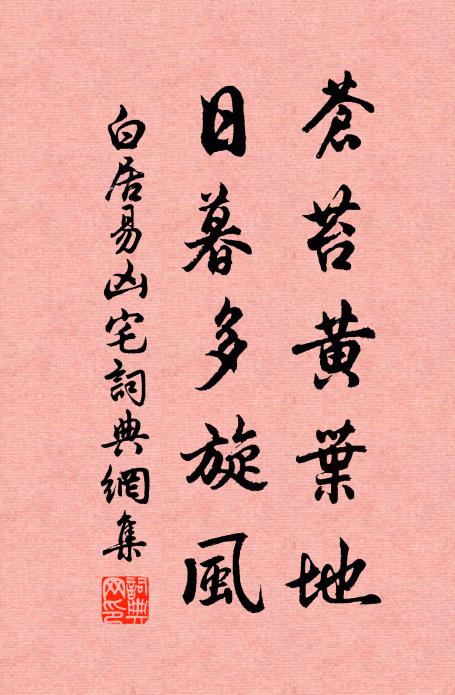 蒼苔黃葉地
日暮多旋風
白居易凶宅詞典網集
詞典網印